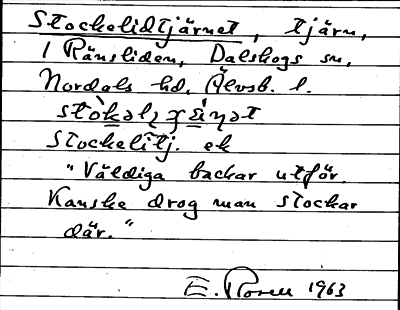 Stockelidtjärnet, tjärn,
i Ränsliden, Dalskogs sn,
Nordals hd, Älvsb. l.
Stockelitj. ek
"Väldiga backar utför
Kanske drog man stockar
där."
E. Rosell 1963